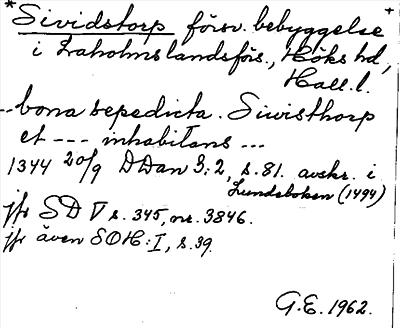 *Sividstorp försv. bebyggelse +
i Laholms landsförs., Höks hd,
Hall. l.
--bona sepedicta. Siwisthorp
et --- inhabitans ...
1344 20/9 DDan 3:2, s. 81. avskr. i
Lundeboken (1494)
jfr SD V s. 345, nr. 3846.
jfr även SOH: I, s. 39.
G.E. 1962.